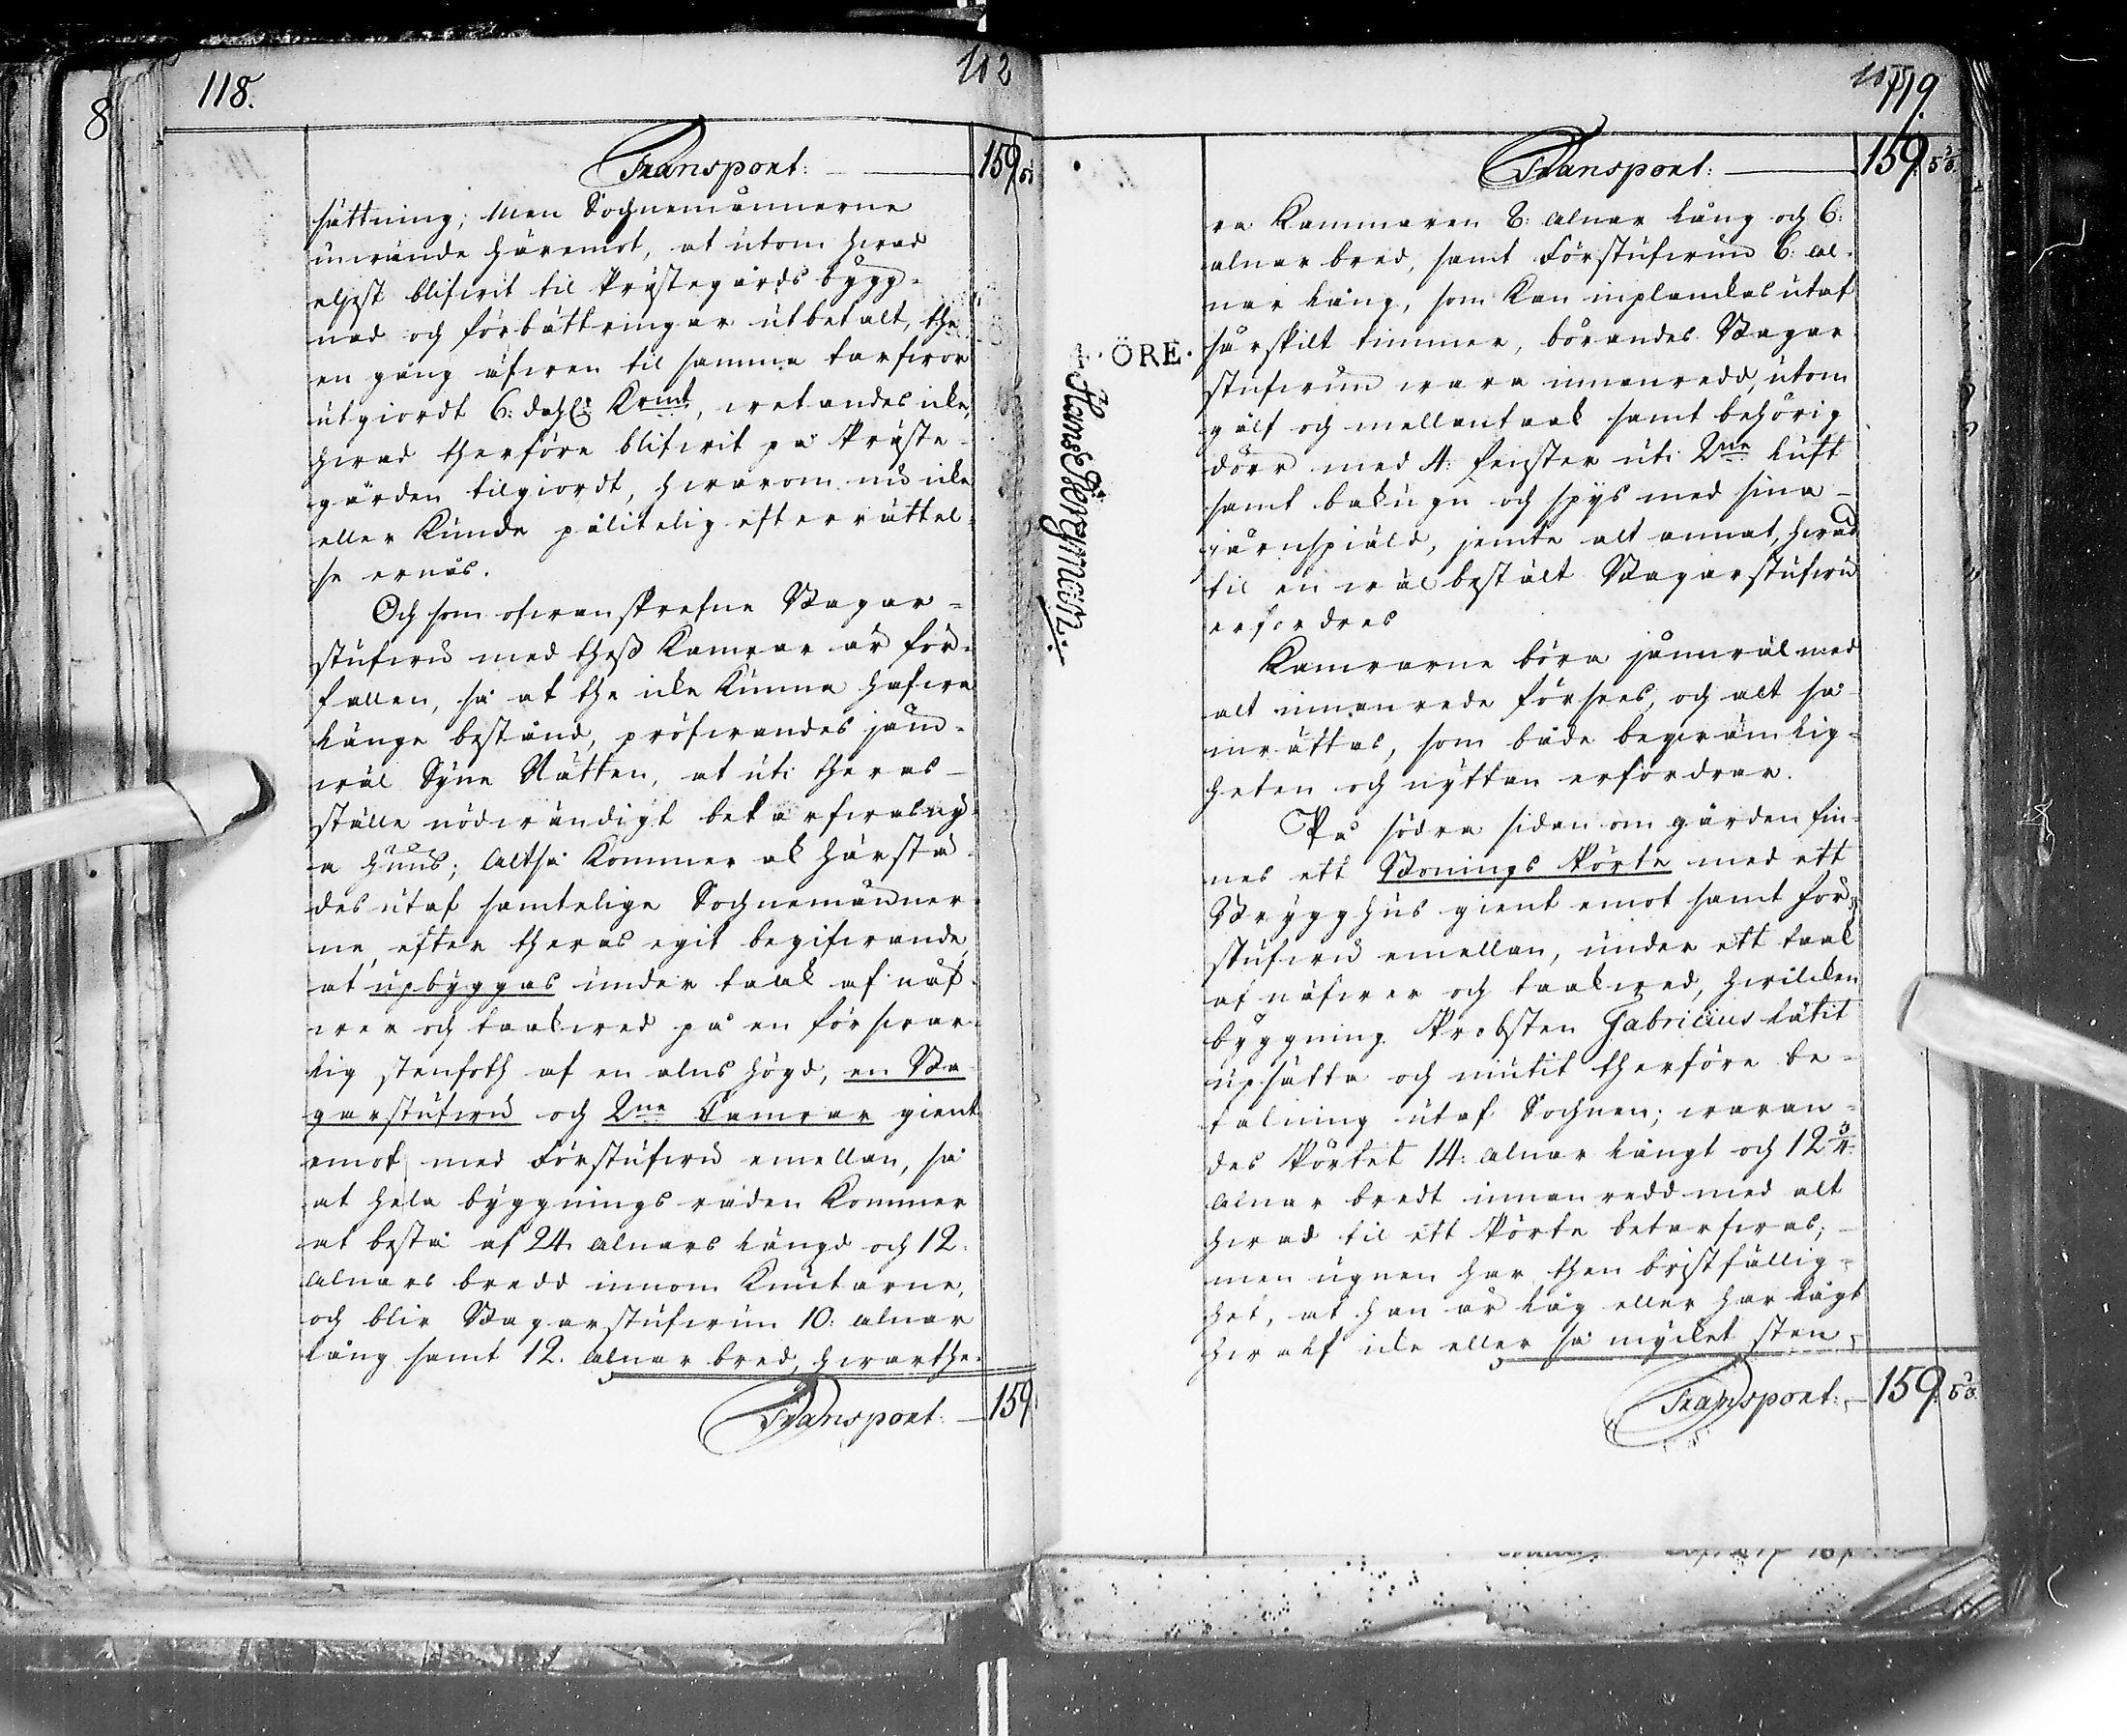 118.
102
Transport: 159
sättning; Men Sochnemännerne
inwände häremot, at utom hwad
eljest blifwit til Prästegårds bygg-
nad och förbättringar utbetalt, the
en gång äfwen til samma tarfwor
utgiordt 6: dahl: Kmt, wetandes icke,
hwad therföre blifwit på Präste-
gården tilgiordt, hwarom nu icke
eller kunde pålitelig efterrättel-
se ernås.
Och som ofwanskrefne Bagar-
stufwu med thess Kamrar är för-
fallen, så at the icke kunna hafwa
länge bestånd, pröfwandes jäm-
wäl Syne Rätten, at uti theras
ställe nödwändigt betarfwas ny-
a huus; Altså kommer ock härstä-
des utaf samtelige Sochnemänner-
ne, efter theras egit begifwande,
at upbyggas under taak af näf-
wer och taakwed på en förswar-
lig stenfoth af en alns högd, en Ba-
garstufwu och 2ne Camrar gient
emot, med Förstufwu emellan, så
at hela byggnings raden kommer
at bestå af 24 alnars längd och 12.
alnars bredd innom knutarne,
och blir Bagarstufwun 10: alnar
lång samt 12. alnar bred, hwarthe-
Transport: 159
119.
ÖRE.
Hans Bergman.
Transport: 159. 5 3/5.
ra Kammaren 8: alnar lång och 6:
alnar bred, samt Förstufwun 6: al-
nar lång, som kan inplanckas utaf
särskilt timmer, börandes Bagar-
stufwun wara innanredd, utom
gålf och mellantaak samt behörig
dörr med 4: fenster uti 2ne luft
samt bakugn och spijs med sina
järnspiäld, jemte alt annat, hwad
til en wäl bestält Bagarstufwu
erfordres
Kamrarne böra jämwäl med
alt innanrede förses, och alt så
inrättas, som både beqwämlig-
heten och nyttan erfordrar.
På södra sidan om gården fin-
nes ett Bonings Pörte med ett
Brygghus gient emot samt för-
stufwu emellan, under ett taak
af näfwer och taakwed, hwilcken
byggning Probsten Fabricius låtit
upsätta och niutit therföre be-
talning utaf Sochnen; waran-
des Pörtet 14: alnar långt och 12 3/4.
alnar bredt innanredd med alt
hwad til ett Pörte betarfwas;
men ugnen har then bristfällig-
het, at han är låg eller har lågt
hwalf icke eller så mycket sten
Transport: 159. 5 3/5.